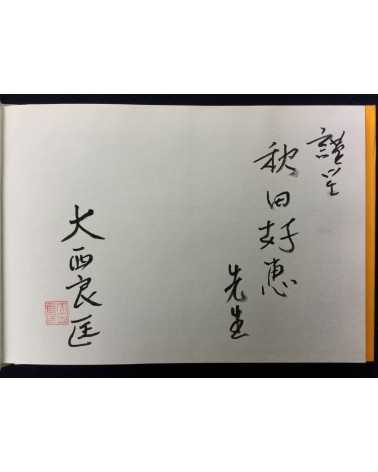 謹呈
秋田好恵
先生
大西良匡